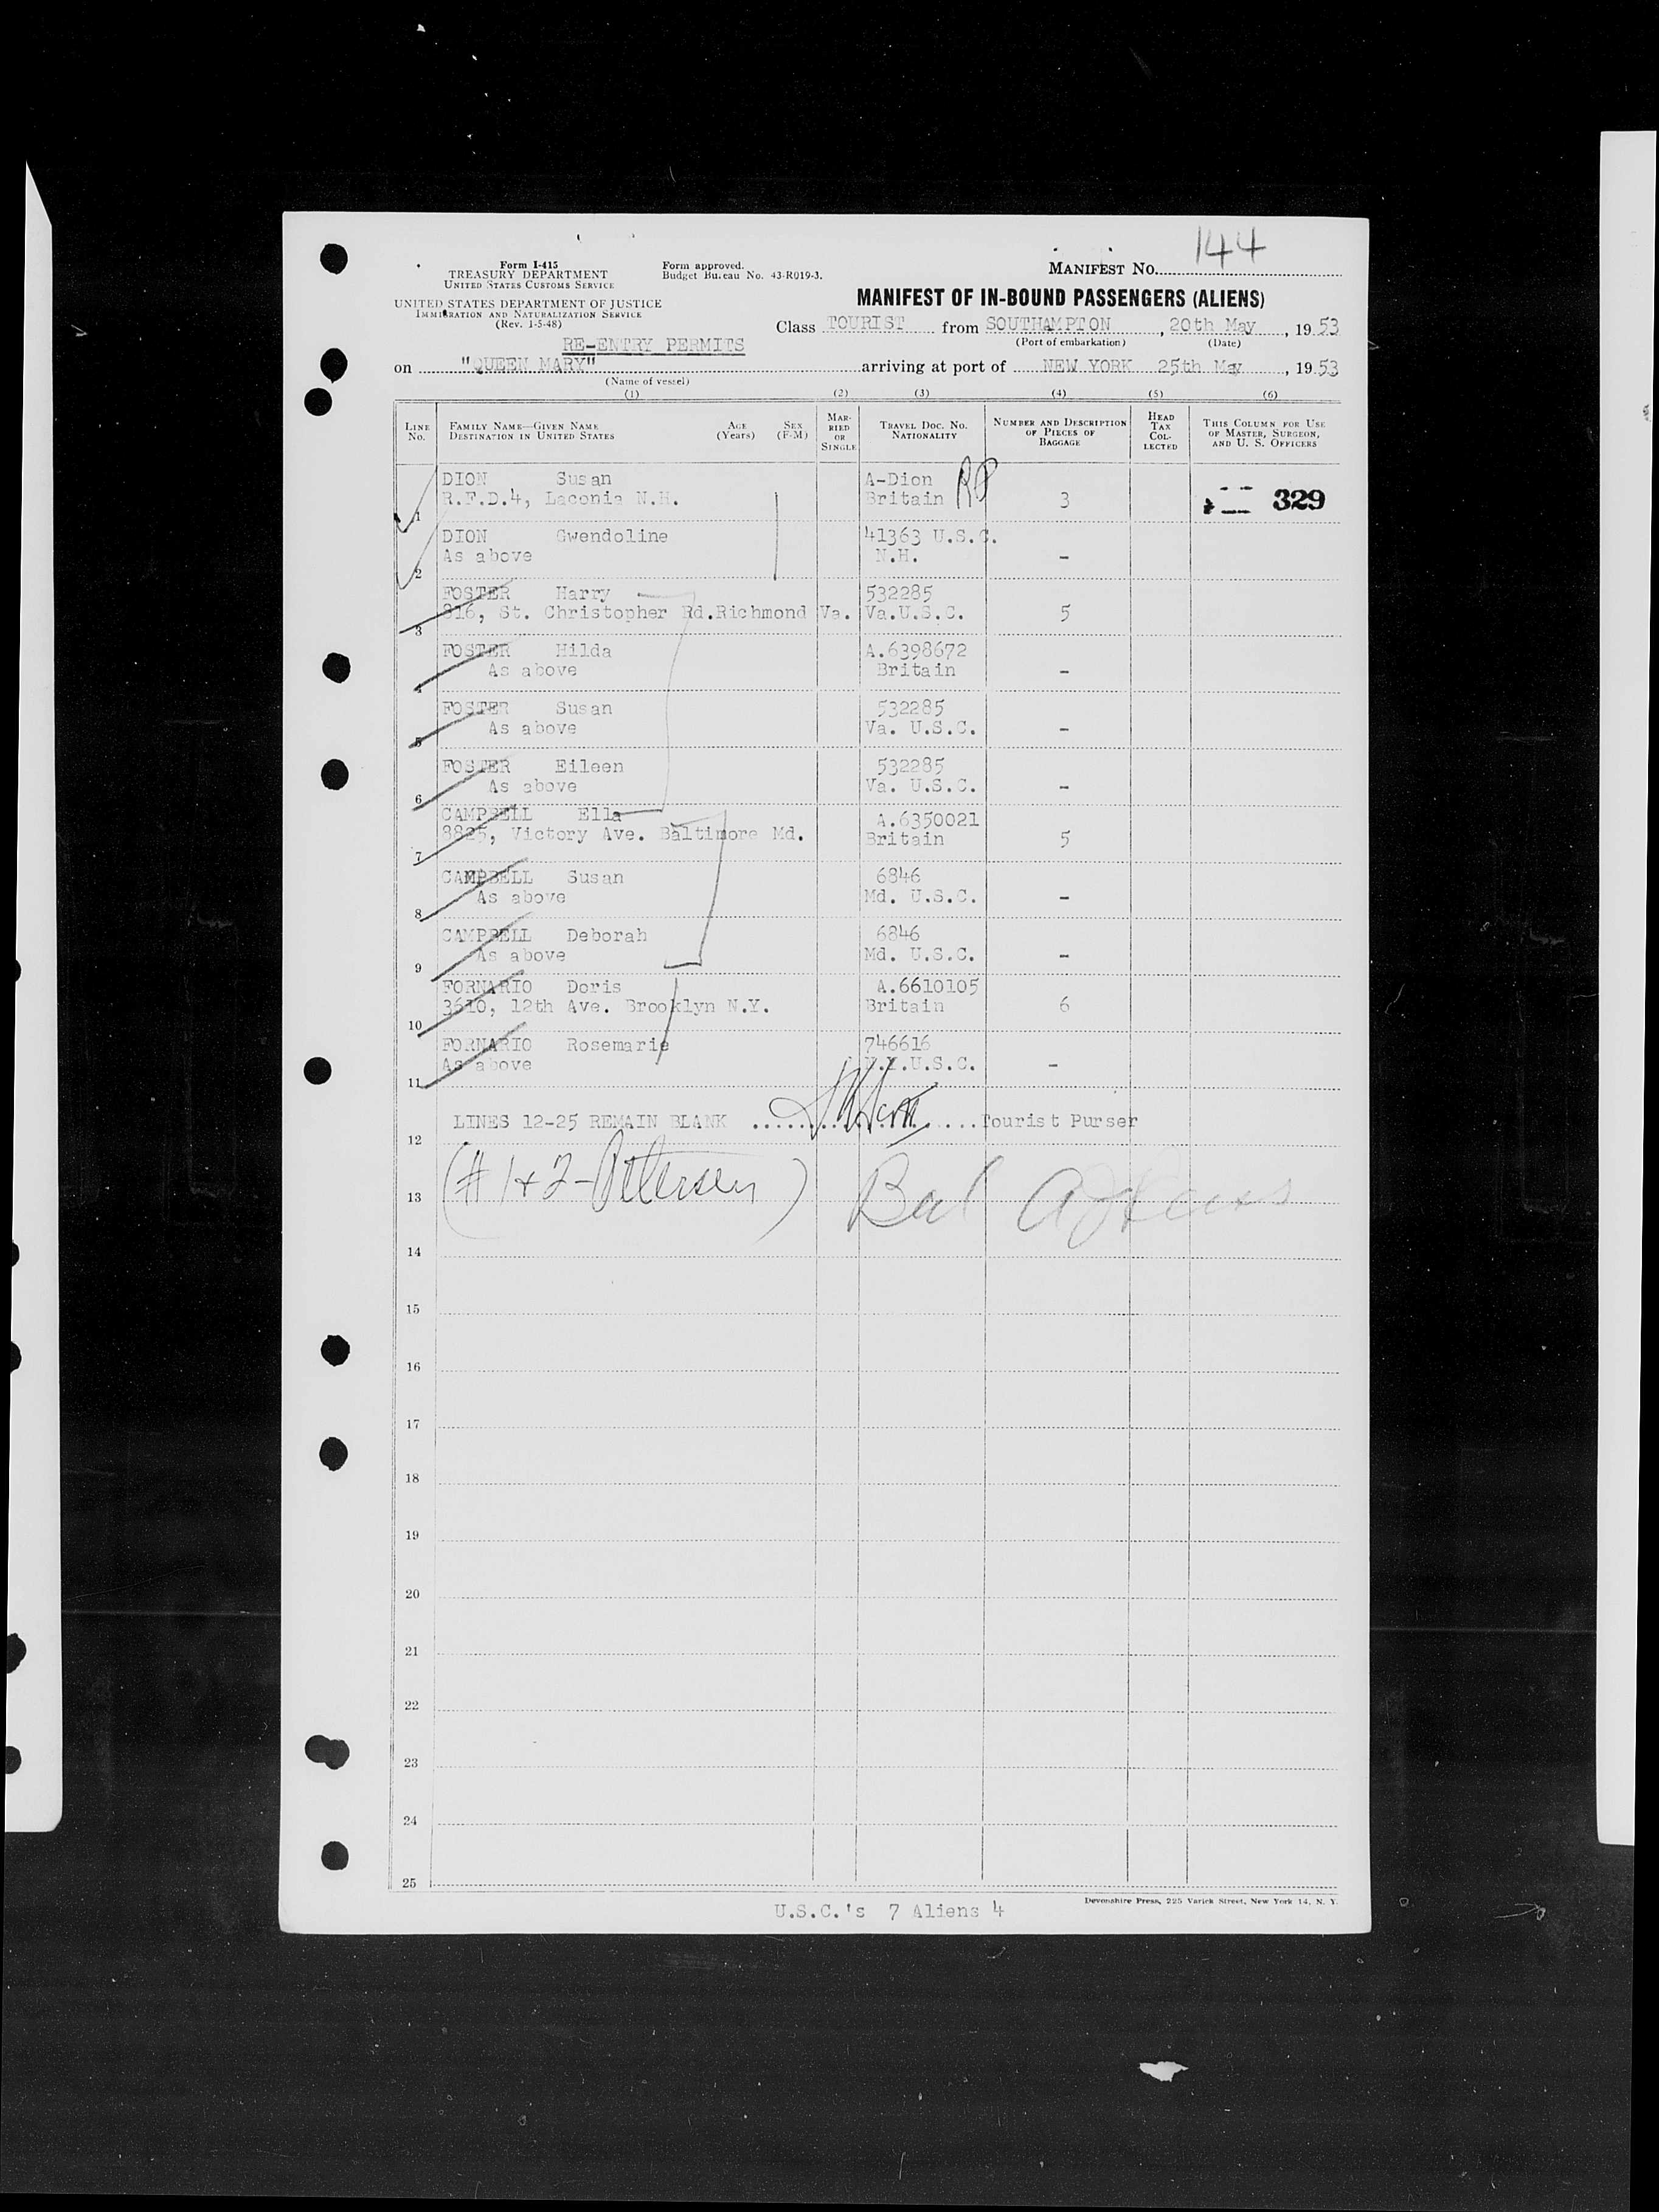 144
Form I-415
TREASURY DEPARTMENT
UNITED STATES CUSTOMS SERVICE
Form approved.
Budget Bureau No. 43-R019-3.
MANIFEST NO.
UNITED STATES DEPARTMENT OF JUSTICE
IMMIGRATION AND NATURALIZATION SERVICE
(Rev. 1-5-48)
MANIFEST OF IN-BOUND PASSENGERS (ALIENS)
Class TOURIST from SOUTHAMPTON, 20th May, 1953
(Port of embarkation) (Date)
RE-ENTRY PERMITS
on "QUEEN MARY" arriving at port of NEW YORK 25th May, 1953
(Name of vessel)
(1) (2) (3) (4) (5) (6)
LINE No. FAMILY NAME—GIVEN NAME DESTINATION IN UNITED STATES AGE (Years) SEX (F-M) MARRIED OR SINGLE TRAVEL DOC. NO. NATIONALITY NUMBER AND DESCRIPTION OF PIECES OF BAGGAGE HEAD TAX COLLECTED THIS COLUMN FOR USE OF MASTER, SURGEON, AND U. S. OFFICERS
DION Susan A-Dion RP
1 R.F.D.4, Laconia N.H. Britain 3 329
DION Gwendoline 41363 U.S.C.
2 As above N.H. -
FOSTER Harry 532285
3 816, St. Christopher Rd.Richmond Va. Va.U.S.C. 5
FOSTER Hilda A.6398672
4 As above Britain -
FOSTER Susan 532285
5 As above Va. U.S.C. -
FOSTER Eileen 532285
6 As above Va. U.S.C. -
CAMPBELL Ella A.6350021
7 8825, Victory Ave. Baltimore Md. Britain 5
CAMPBELL Susan 6846
8 As above Md. U.S.C. -
CAMPBELL Deborah 6846
9 As above Md. U.S.C. -
FORNARIO Doris A.6610105
10 3610, 12th Ave. Brooklyn N.Y. Britain 6
FORNARIO Rosemarie 746616
11 As above N.Y.U.S.C. -
12 LINES 12-25 REMAIN BLANK Tourist Purser
13 (# 1+2-Petersen) Bal
14
15
16
17
18
19
20
21
22
23
24
25
Devonshire Press, 225 Varick Street, New York 14, N. Y.
U.S.C.'s 7 Aliens 4